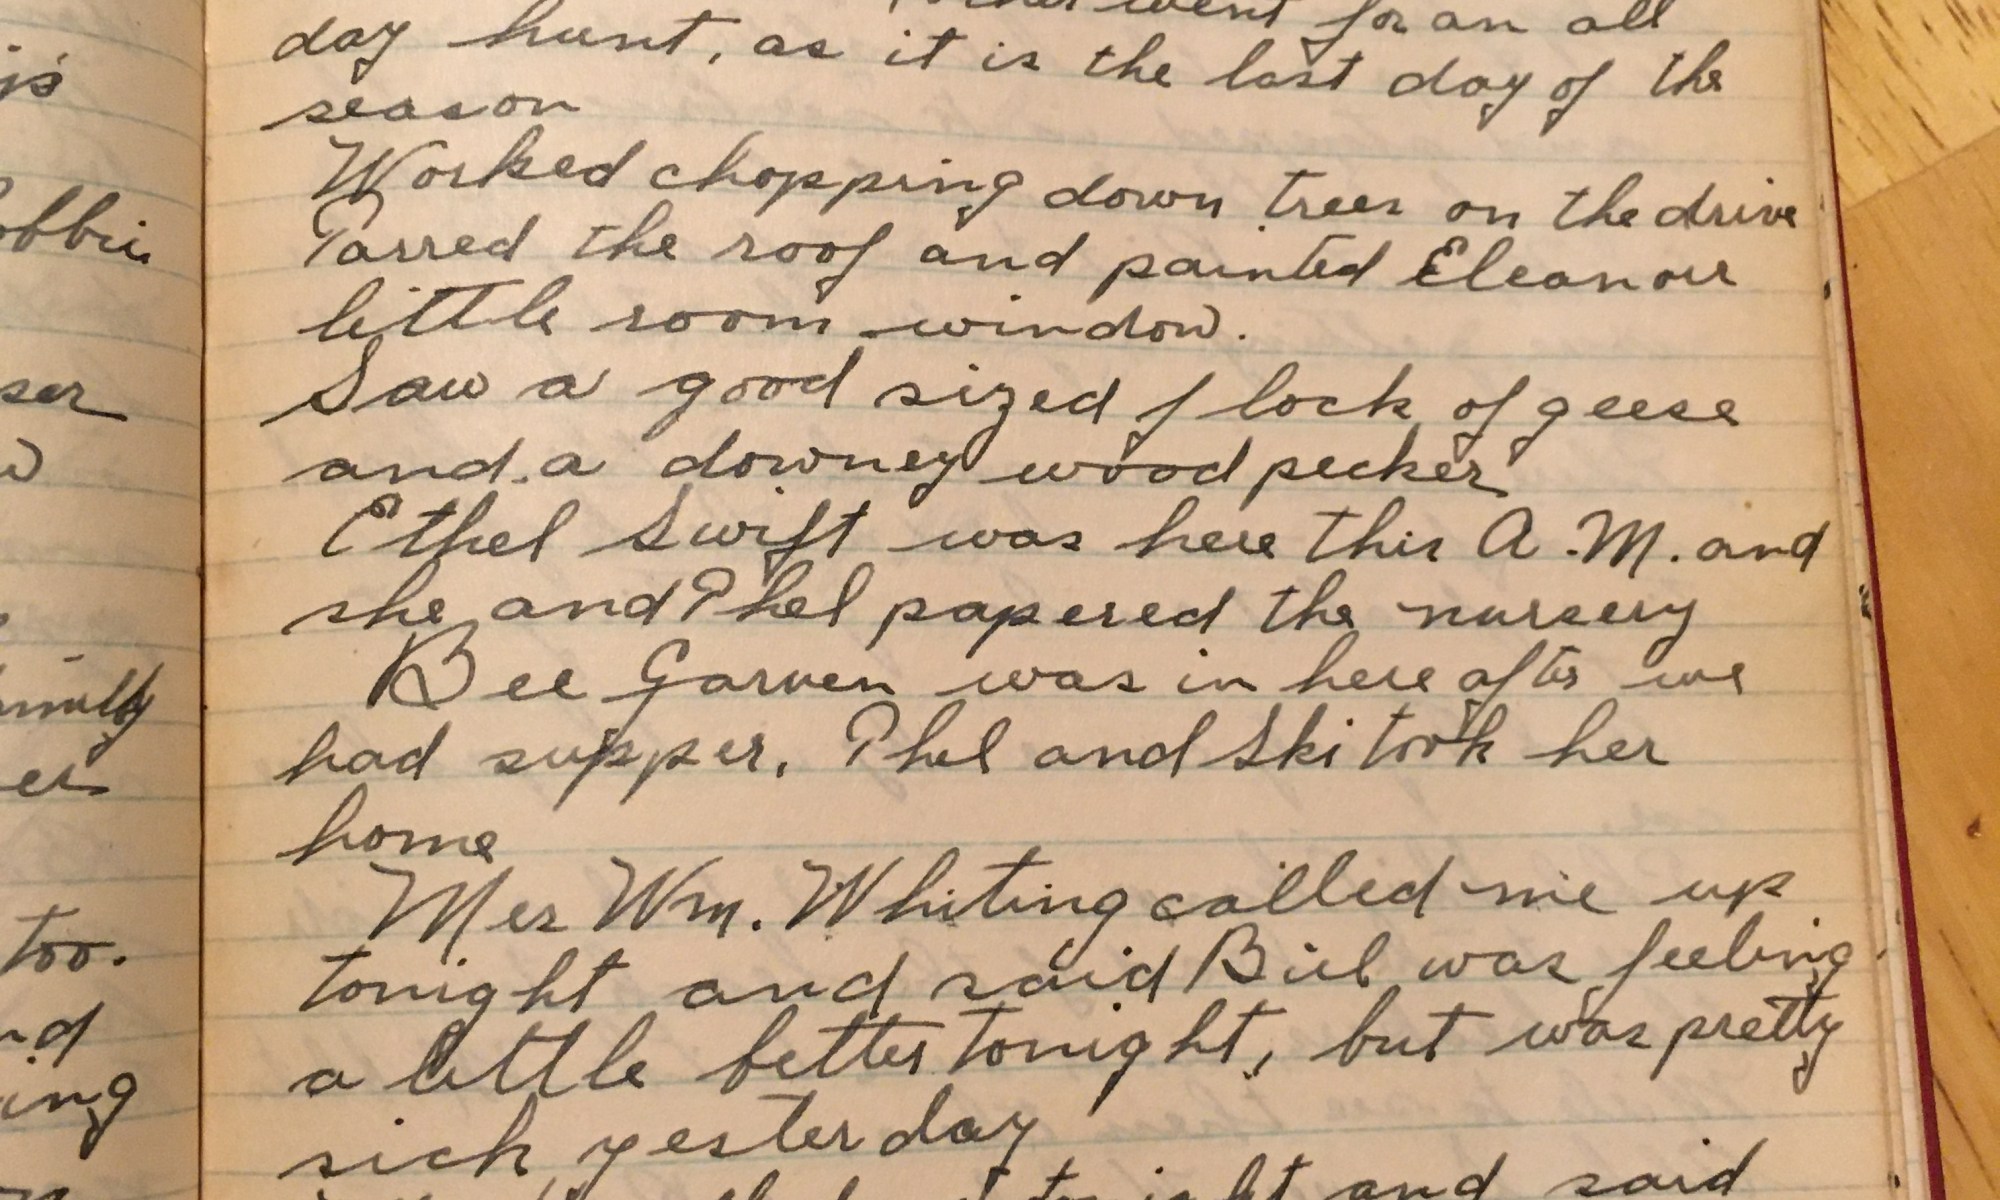 went for an all
day hunt, as it is the last day of the
season
Worked chopping down trees on the drive
Tarred the roof and painted Eleanors
little room window.
Saw a good sized flock of geese
and a downey woodpecker
Ethel Swift was here this A.M. and
she and Phel papered the nursery
Bee Garven was in here after we
had supper. Phel and Ski took her
home
Mrs Wm. Whiting called me up
tonight and said Bill was feeling
a little better tonight, but was pretty
sick yesterday
tonight and said
too.